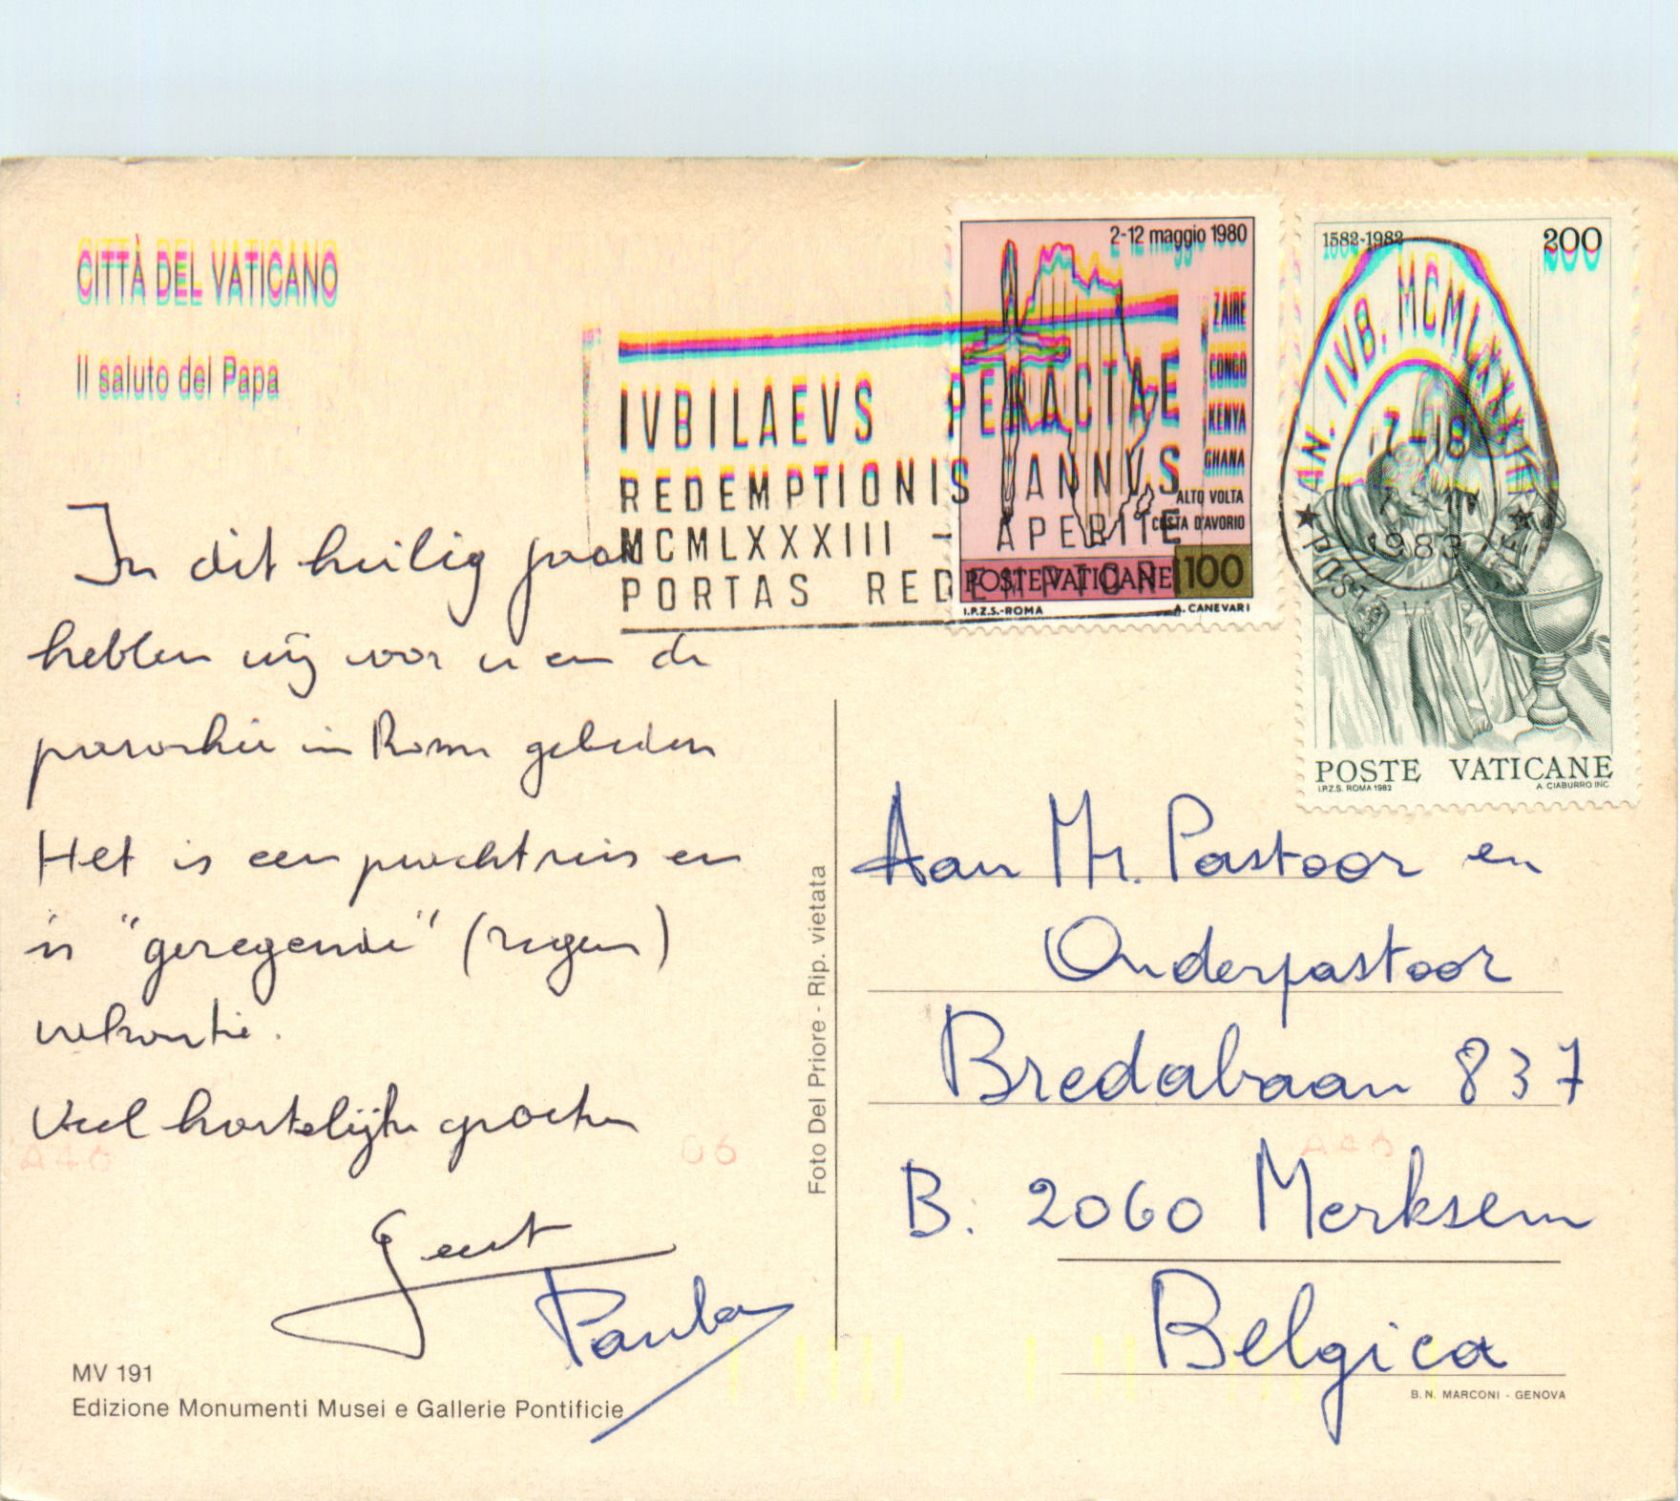 CITTÀ DEL VATICANO
Il saluto del Papa
In dit heilig jaar
hebben wij voor u en de
parochie in Rome gebeden
Het is een prachtreis en
is "geregende" (regen)
vakantie.
Veel hartelijke groeten
Geert
Paula
MV 191
Edizione Monumenti Musei e Gallerie Pontificie
Foto Del Priore - Rip. vietata
IVBILAEVS PERACTAE
REDEMPTIONIS ANNVS
MCMLXXXIII - APERITE
PORTAS REDEMPTORI
2-12 maggio 1980
ZAIRE
CONGO
KENYA
GHANA
ALTO VOLTA
COSTA D'AVORIO
POSTE VATICANE 100
I.P.Z.S.-ROMA A. CANEVARI
1582-1982 200
AN. IVB. MCMLXXXIII
1983
POSTE VATICANE
I.P.Z.S. ROMA 1982 A. CIABURRO INC.
Aan Mr. Pastoor en
Onderpastoor
Bredabaan 837
B. 2060 Merksem
Belgica
B.N. MARCONI - GENOVA